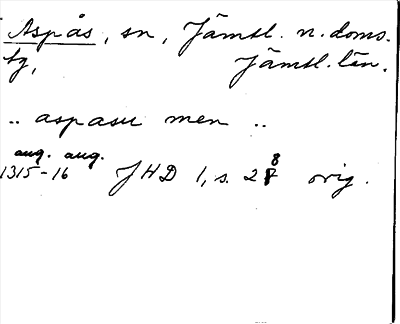 Aspås, sn, Jämtl. n. doms.
tg, Jämtl. län.
.. aspasu men ..
aug. aug.
1315-16 JHD 1, s. 28 orig.